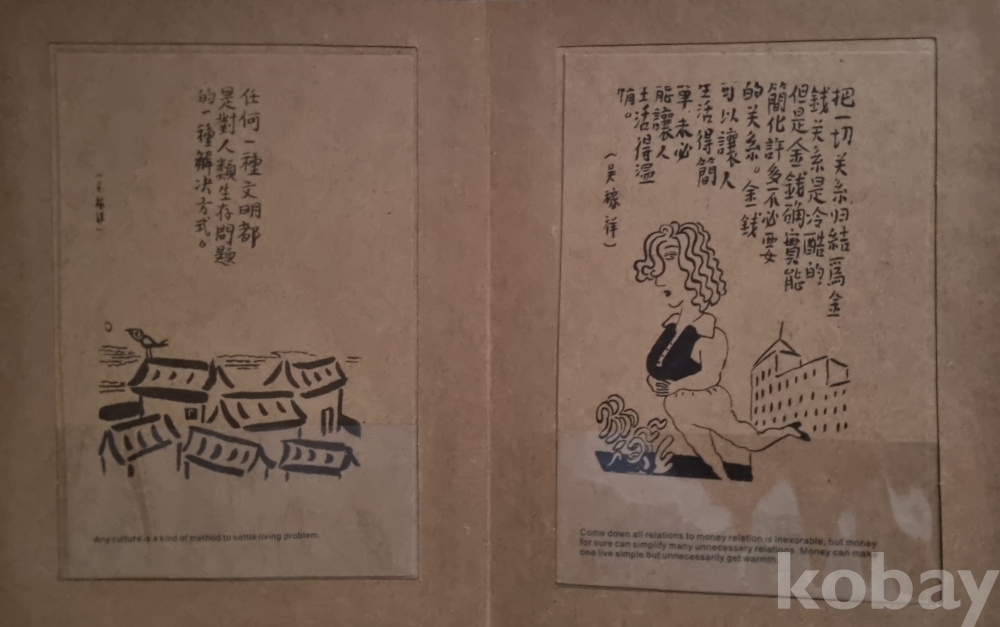 任何一種文明都
是對人類生存問題
的一種解决方式。
Any culture is a kind of method to settle living problem
把一切关系归结爲金
錢关系是冷酷的
但是金錢确實能
簡化許多不必要
的关系。金錢
可以讓人
生活得簡
單未必
能讓人
生活得温
情。
（吴稼祥）
Come down all relations to money relation is inexorable, but money
for sure can simplify many unnecessary relations. Money can make
one live simple but unnecessarily get warmth.
kobay